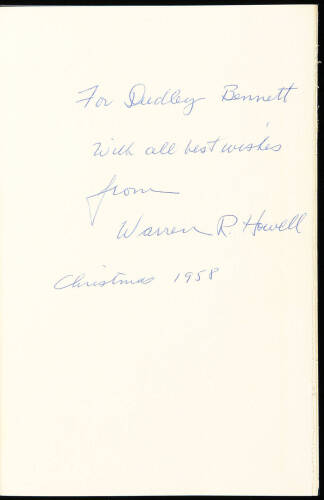 For Dudley Bennett
With all best wishes
from
Warren R. Howell
Christmas 1958